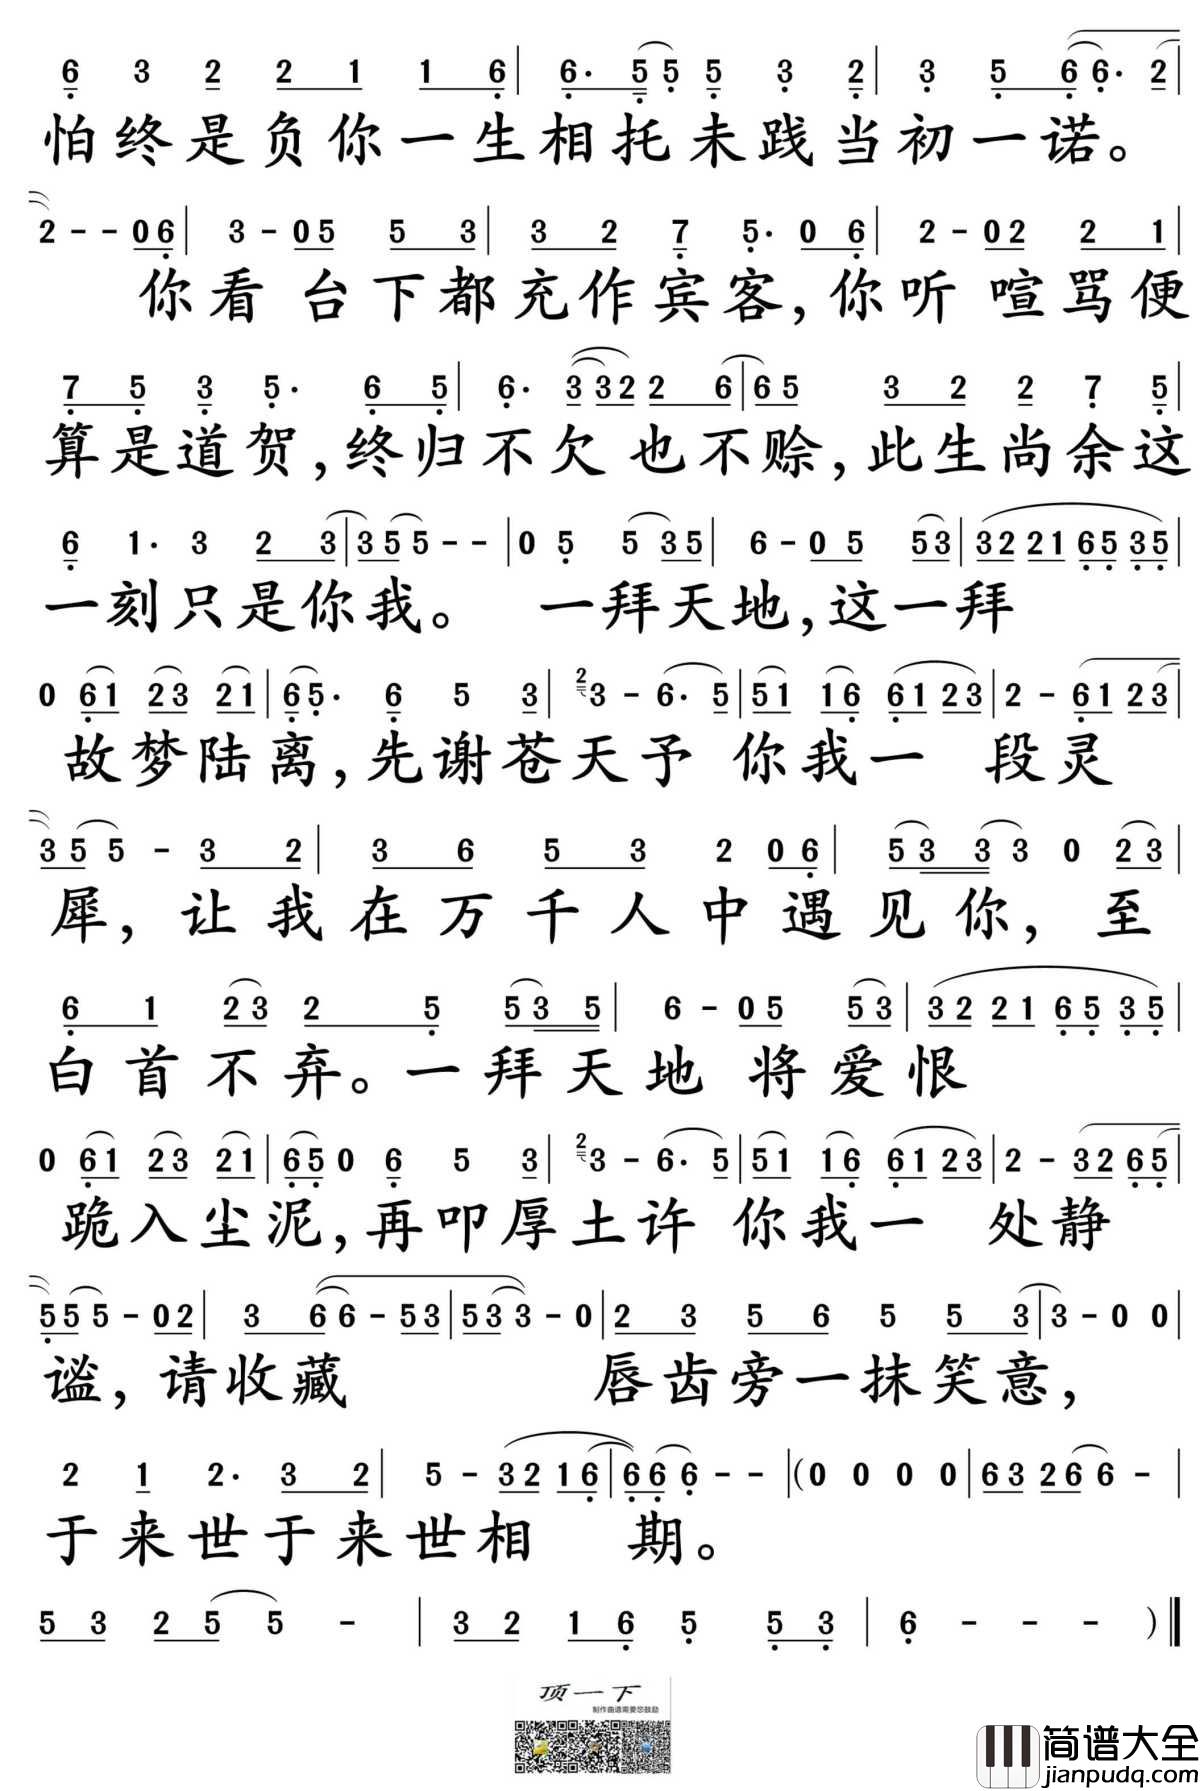 6 3 2 2 1 1 6 | 6· 5 5 5 3 2 | 3 5 6 6· 2 |
怕终是负你一生相托未践当初一诺。
2 - - 0 6 | 3 - 0 5 5 3 | 3 2 7 5· 0 6 | 2 - 0 2 2 1 |
你看台下都充作宾客,你听喧骂便
7 5 3 5· 6 5 | 6· 3 3 2 2 6 | 6 5 3 2 2 7 5 |
算是道贺,终归不欠也不赊,此生尚余这
6 1· 3 2 3 | 3 5 5 - - | 0 5 5 3 5 | 6 - 0 5 5 3 | 3 2 2 1 6 5 3 5 |
一刻只是你我。 一拜天地,这一拜
0 6 1 2 3 2 1 | 6 5· 6 5 3 | 2 3 - 6· 5 | 5 1 1 6 6 1 2 3 | 2 - 6 1 2 3 |
故梦陆离,先谢苍天予 你我一 段灵
3 5 5 - 3 2 | 3 6 5 3 2 0 6 | 5 3 3 3 0 2 3 |
犀,让我在万千人中遇见你,至
6 1 2 3 2 5 5 3 5 | 6 - 0 5 5 3 | 3 2 2 1 6 5 3 5 |
白首不弃。一拜天地 将爱恨
0 6 1 2 3 2 1 | 6 5 0 6 5 3 | 2 3 - 6· 5 | 5 1 1 6 6 1 2 3 | 2 - 3 2 6 5 |
跪入尘泥,再叩厚土许 你我一 处静
5 5 5 - 0 2 | 3 6 6 - 5 3 | 5 3 3 - 0 | 2 3 5 6 5 5 3 | 3 - 0 0 |
谧,请收藏 唇齿旁一抹笑意,
2 1 2· 3 2 | 5 - 3 2 1 6 | 6 6 6 - - | (0 0 0 0 | 6 3 2 6 6 - |
于来世于来世相 期。
5 3 2 5 5 - | 3 2 1 6 5 5 3 | 6 - - - )
顶一下
制作曲谱需要您鼓励
简谱大全
jianpudq.com